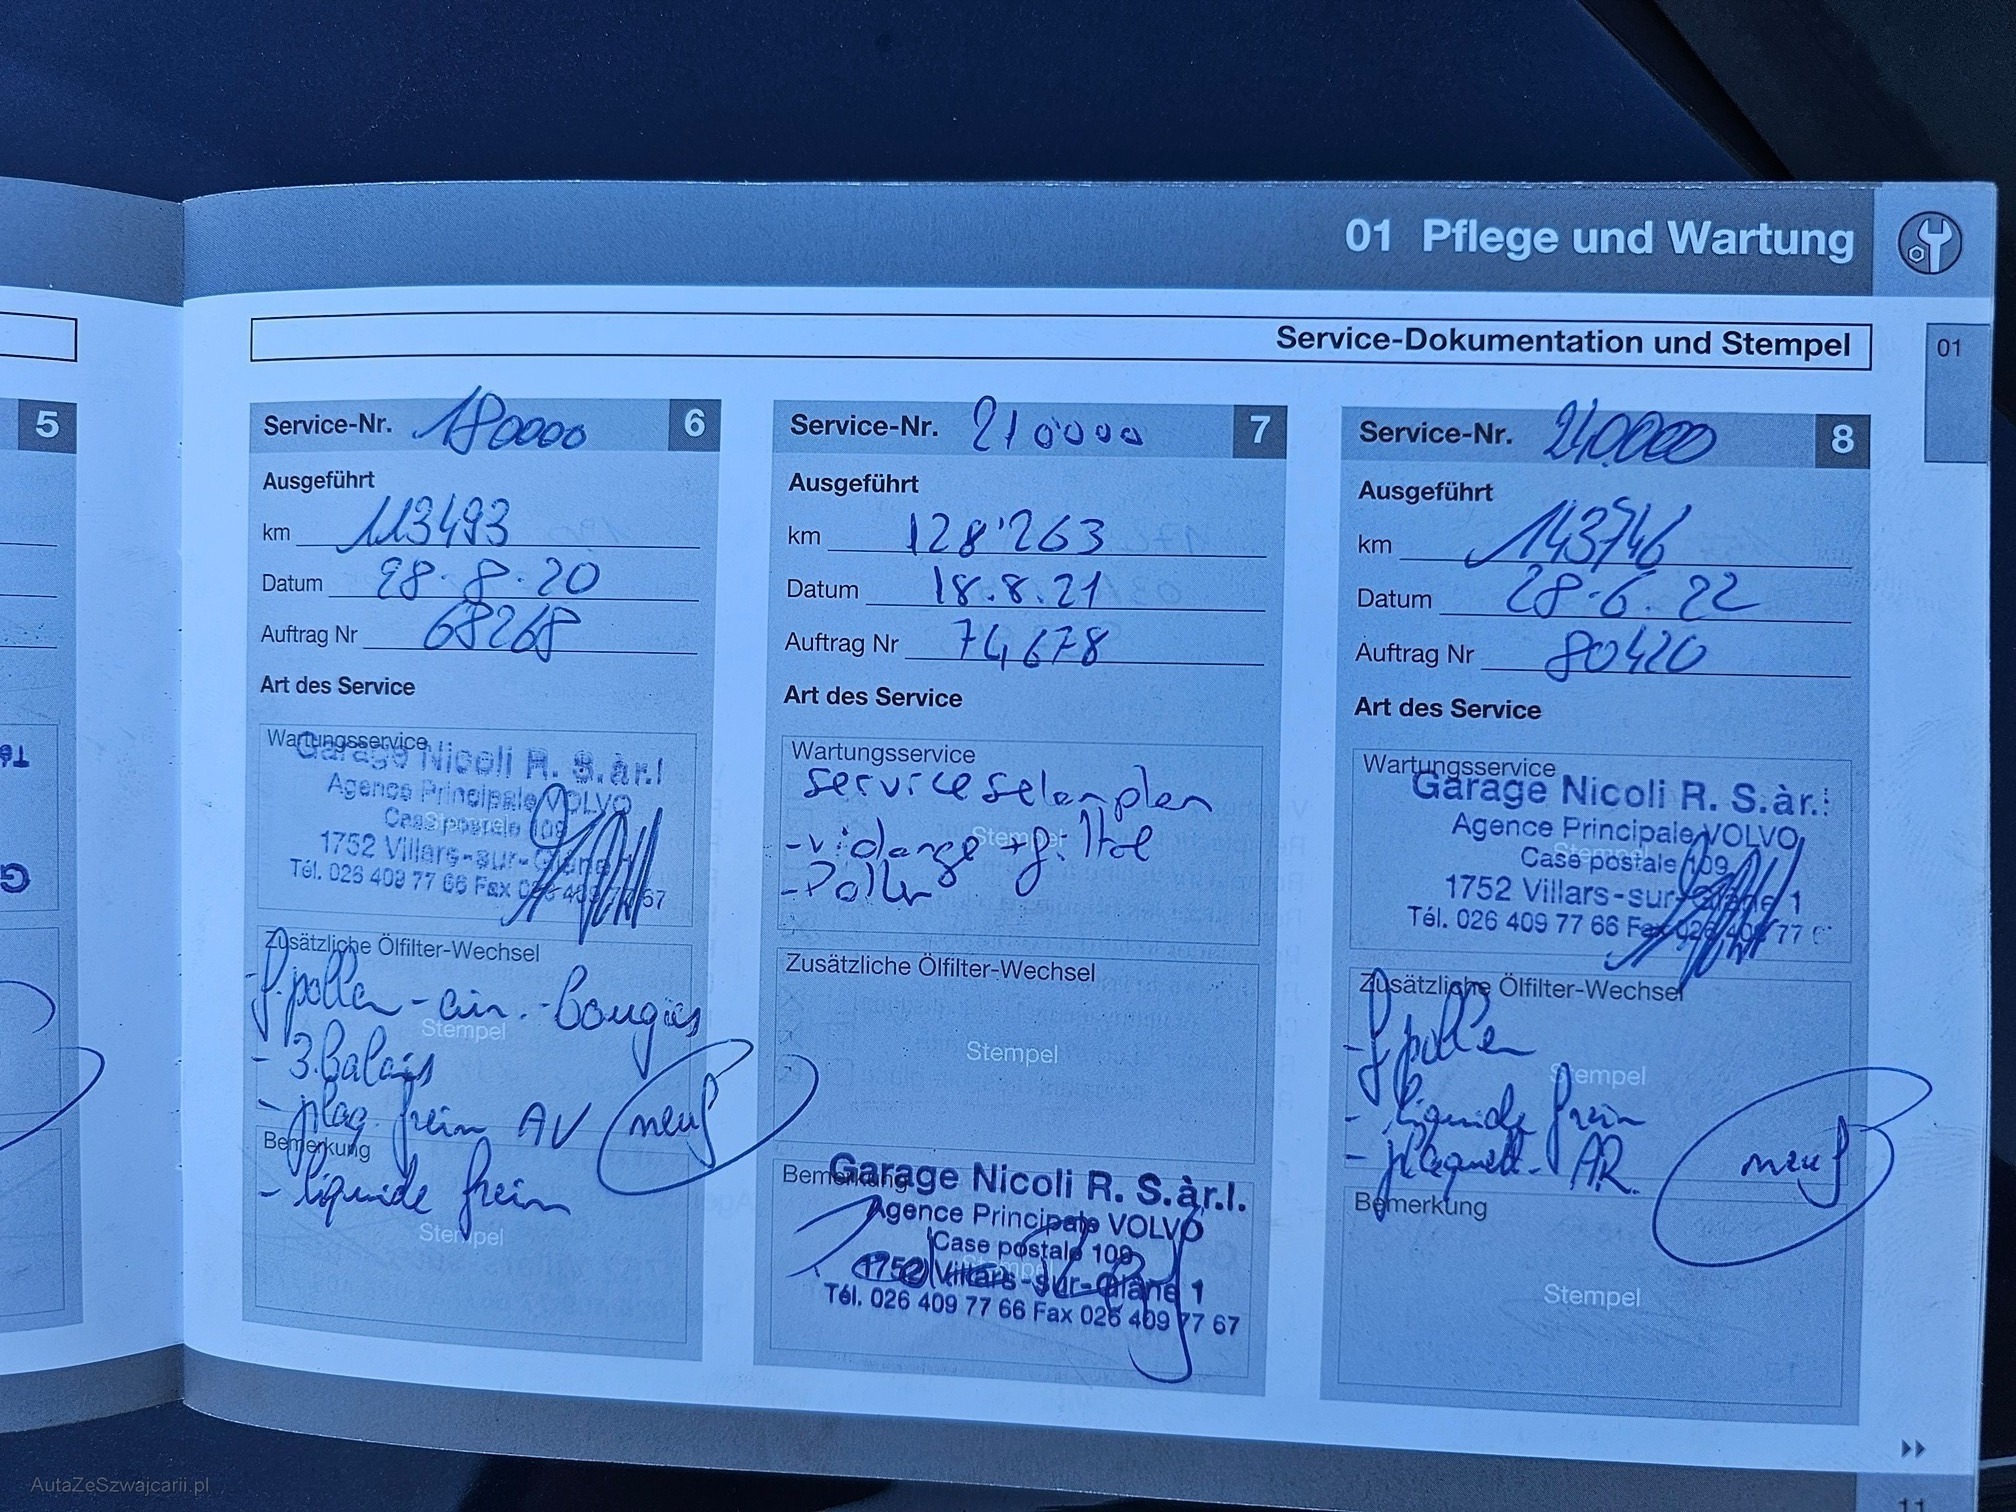 01 Pflege und Wartung
Service-Dokumentation und Stempel
01
5
Service-Nr. 180000 6
Ausgeführt
km 113493
Datum 28.8.20
Auftrag Nr 68268
Art des Service
Wartungsservice
Garage Nicoli R. S.àr.l
Agence Principale VOLVO
Case postale 109
Stempel
1752 Villars-sur-Glâne 1
Tél. 026 409 77 66 Fax 026 409 77 67
Zusätzliche Ölfilter-Wechsel
f.pollen - air. - Bougies
Stempel
- 3.Balais
- plaq. frein AV neuf
Bemerkung
- liquide frein
Stempel
Service-Nr. 210000 7
Ausgeführt
km 128'263
Datum 18.8.21
Auftrag Nr 74678
Art des Service
Wartungsservice
service selon plan
Stempel
- vidange + filtre
- Pollen
Zusätzliche Ölfilter-Wechsel
Stempel
Bemerkung
Garage Nicoli R. S.àr.l.
Agence Principale VOLVO
Case postale 109
Stempel
1752 Villars-sur-Glâne 1
Tél. 026 409 77 66 Fax 026 409 77 67
Service-Nr. 240.000 8
Ausgeführt
km 143746
Datum 28.6.22
Auftrag Nr 80420
Art des Service
Wartungsservice
Garage Nicoli R. S.àr.
Agence Principale VOLVO
Stempel
Case postale 109
1752 Villars-sur-Glâne 1
Tél. 026 409 77 66 Fax 026 409 77
Zusätzliche Ölfilter-Wechsel
- f pollen
Stempel
- liquide frein
- plaquett. AR. neuf
Bemerkung
Stempel
11
AutaZeSzwajcarii.pl